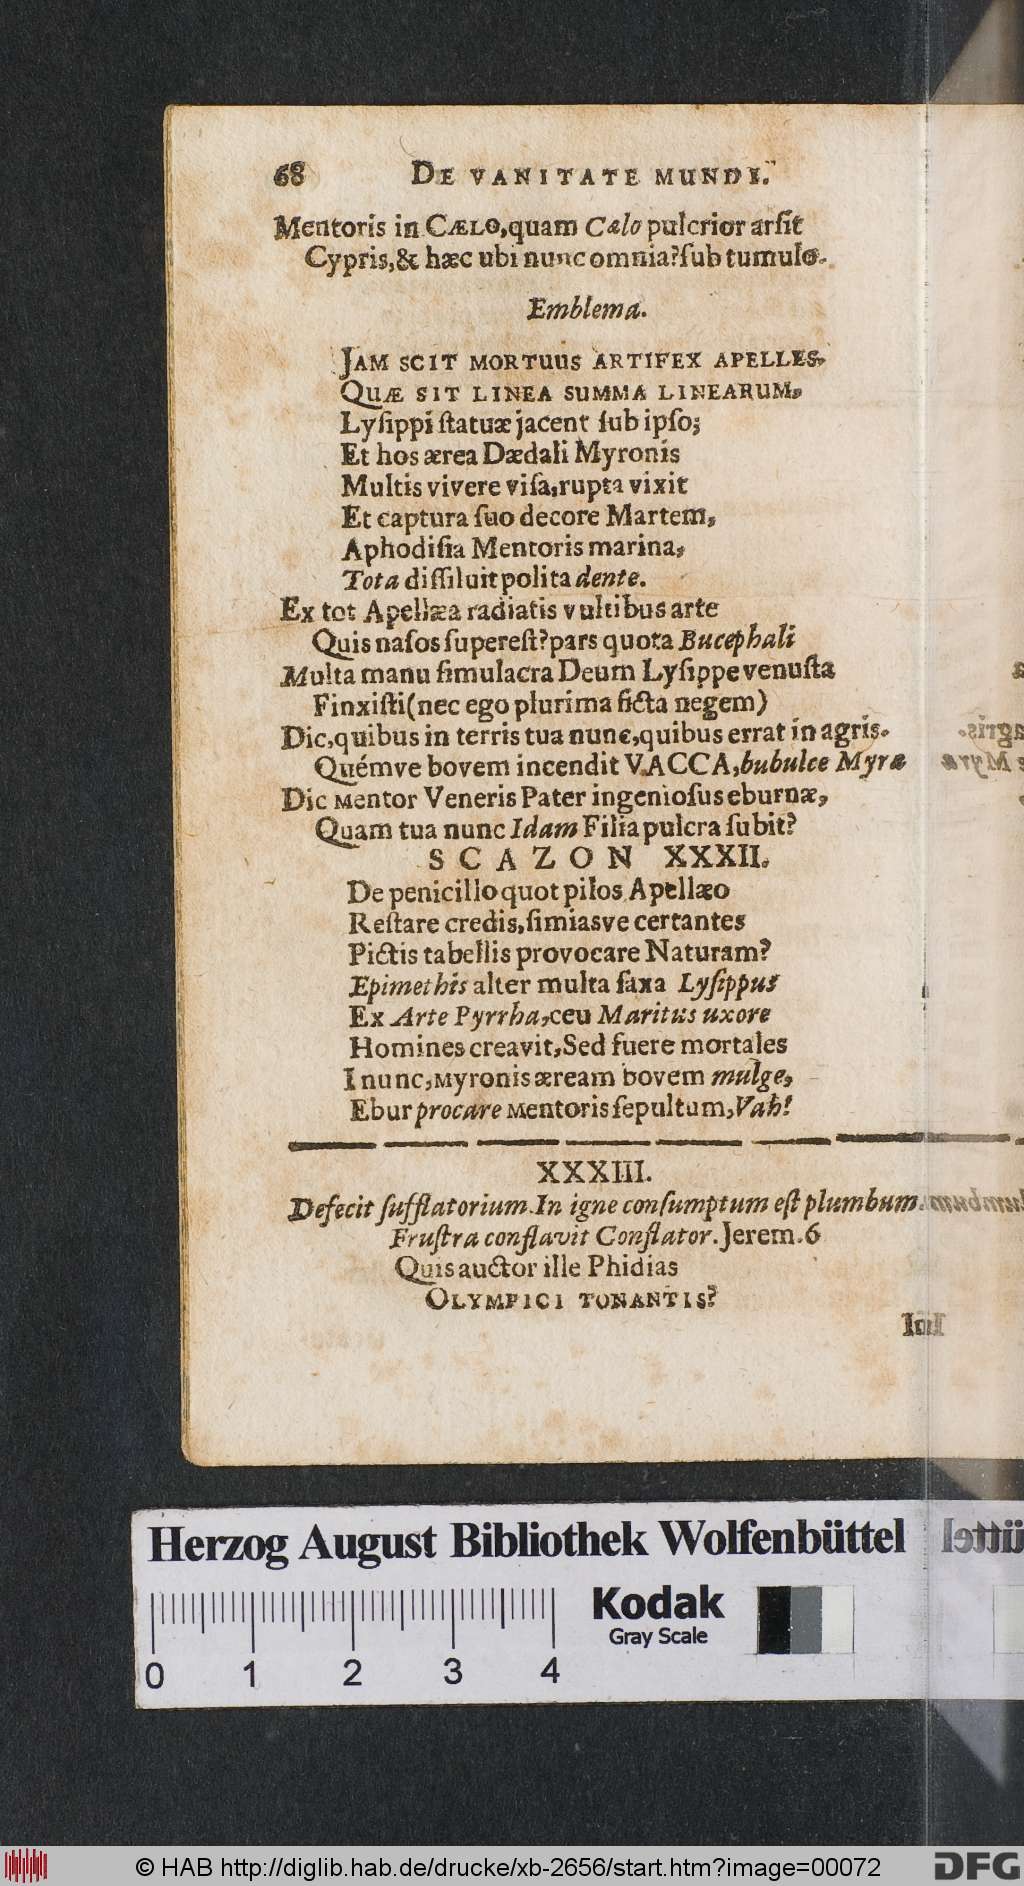 68 DE VANITATE MUNDI.
Mentoris in CÆLO, quam Cælo pulcrior arsit
Cypris, & hæc ubi nunc omnia? ſub tumulo.
Emblema.
JAM SCIT MORTUUS ARTIFEX APELLES,
QUÆ SIT LINEA SUMMA LINEARUM,
Lyſippi ſtatuæ jacent ſub ipſo;
Et hos ærea Dædali Myronis
Multis vivere viſa, rupta vixit
Et captura ſuo decore Martem,
Aphodiſia Mentoris marina,
Tota diſſiluit polita dente.
Ex tot Apellæa radiatis vultibus arte
Quis naſos ſupereſt? pars quota Bucephali
Multa manu ſimulacra Deum Lyſippe venuſta
Finxiſti (nec ego plurima ficta negem)
Dic, quibus in terris tua nunc, quibus errat in agris.
Quémve bovem incendit VACCA, bubulce Myræ
Dic Mentor Veneris Pater ingenioſus eburnæ,
Quam tua nunc Idam Filia pulcra ſubit?
SCAZON XXXII.
De penicillo quot pilos Apellæo
Reſtare credis, ſimiasve certantes
Pictis tabellis provocare Naturam?
Epimethis alter multa ſaxa Lyſippus
Ex Arte Pyrrha, ceu Maritus uxore
Homines creavit, Sed fuere mortales
I nunc, Myronis æream bovem mulge,
Ebur procare Mentoris ſepultum, Vah!
XXXIII.
Defecit ſufflatorium. In igne conſumptum eſt plumbum.
Fruſtra conflavit Conflator. Jerem. 6
Quis auctor ille Phidias
OLYMPICI TONANTIS?
Herzog August Bibliothek Wolfenbüttel
Kodak
Gray Scale
0 1 2 3 4
© HAB http://diglib.hab.de/drucke/xb-2656/start.htm?image=00072
DFG